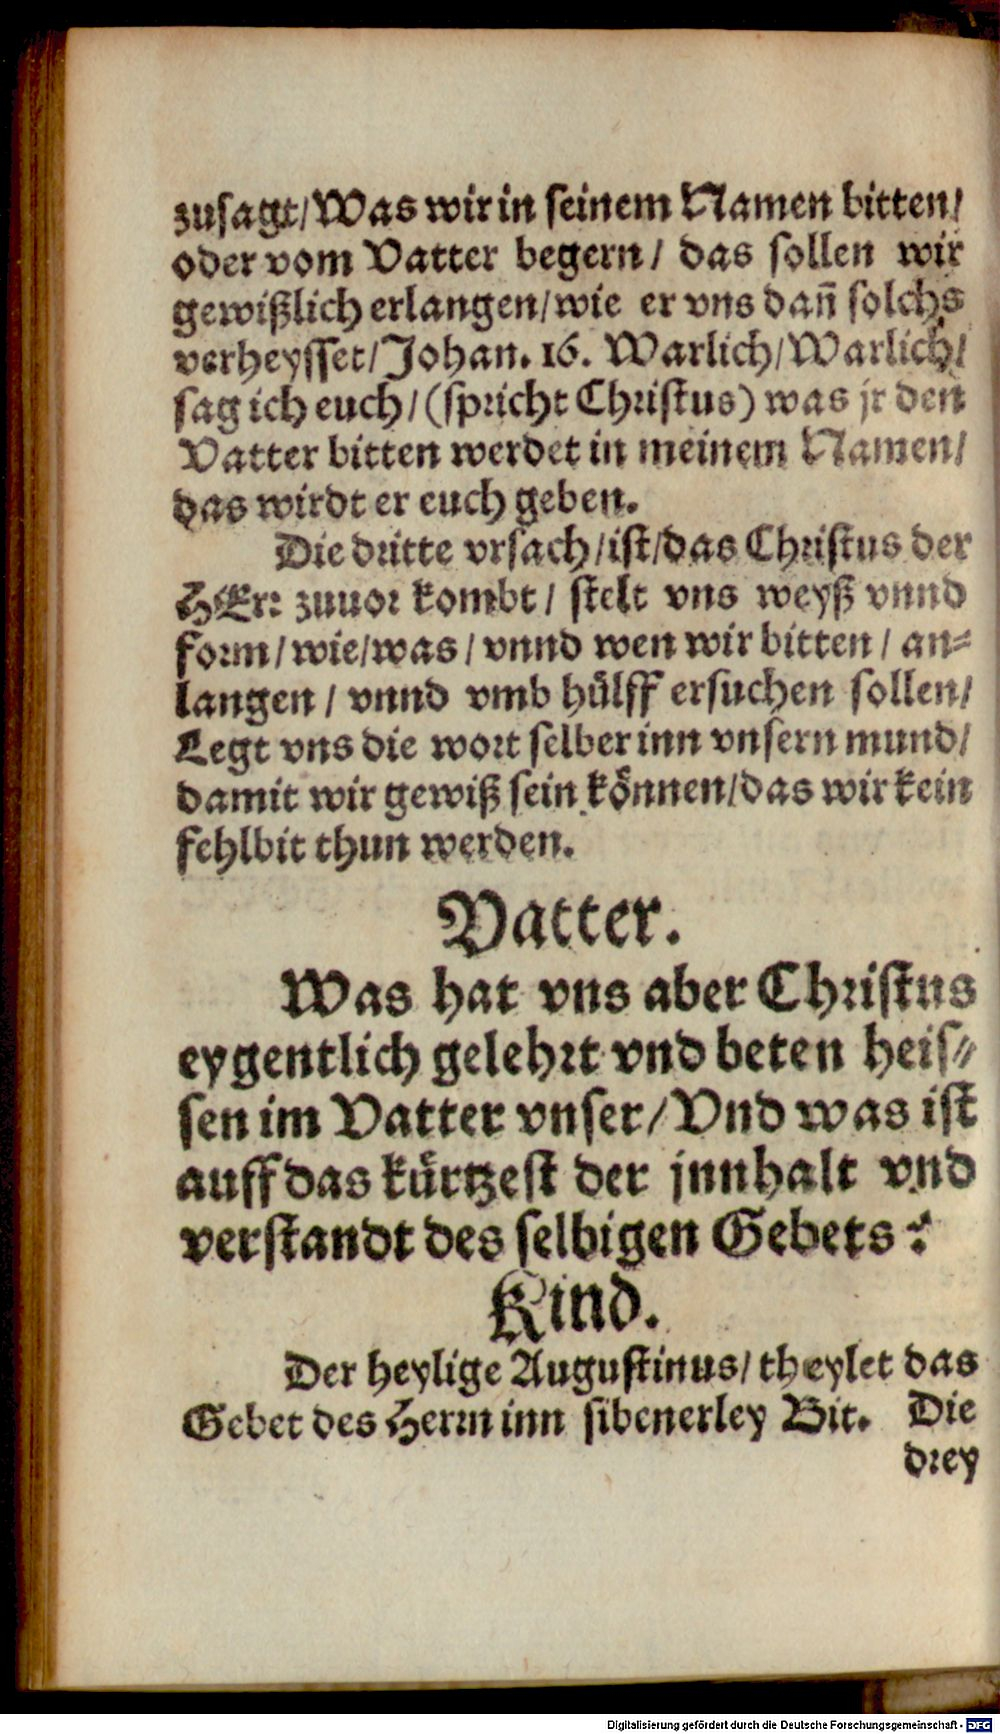 zusagt/Was wir in seinem Namen bitten/
oder vom Vatter begern/ das sollen wir
gewißlich erlangen/wie er vns dañ solchs
verheysset/Johan. 16. Warlich/Warlich/
sag ich euch/(spricht Christus) was jr den
Vatter bitten werdet in meinem Namen/
das wirdt er euch geben.
Die dritte vrsach/ist/das Christus der
HErr zuuor kombt/ stelt vns weyß vnnd
form/wie/was/vnnd wen wir bitten/ an-
langen/ vnnd vmb hülff ersuchen sollen/
Legt vns die wort selber inn vnsern mund/
damit wir gewiß sein können/das wir kein
fehlbit thun werden.
Vatter.
Was hat vns aber Christus
eygentlich gelehrt vnd beten heis-
sen im Vatter vnser/Vnd was ist
auff das kürtzest der jnnhalt vnd
verstandt des selbigen Gebets?
Kind.
Der heylige Augustinus/theylet das
Gebet des Herrn inn sibenerley Bit. Die
drey
Digitalisierung gefördert durch die Deutsche Forschungsgemeinschaft - DFG